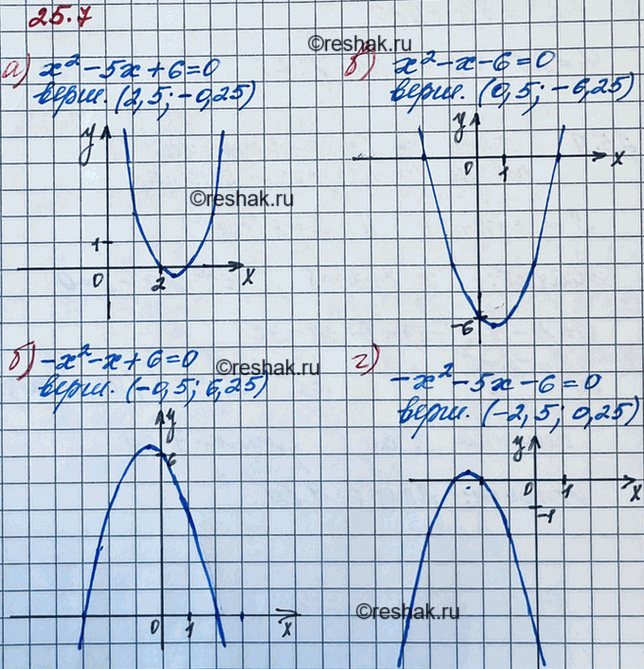 25.7
©reshak.ru
а) x² - 5x + 6 = 0
верш. (2,5; -0,25)
y
1
0
2
x
©reshak.ru
в) x² - x - 6 = 0
верш. (0,5; -6,25)
y
0
1
x
-6
б) -x² - x + 6 = 0
верш. (-0,5; 6,25)
©reshak.ru
y
6
0
1
x
г)
-x² - 5x - 6 = 0
верш. (-2,5; 0,25)
y
0
1
x
-1
©reshak.ru